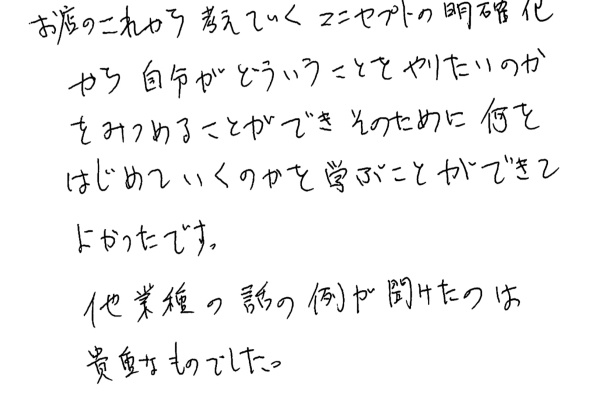 お店のこれから考えていくコンセプトの明確化
から自分がどういうことをやりたいのか
をみつめることができそのために何を
はじめていくのかを学ぶことができて
よかったです。
他業種の話の例が聞けたのは
貴重なものでした。